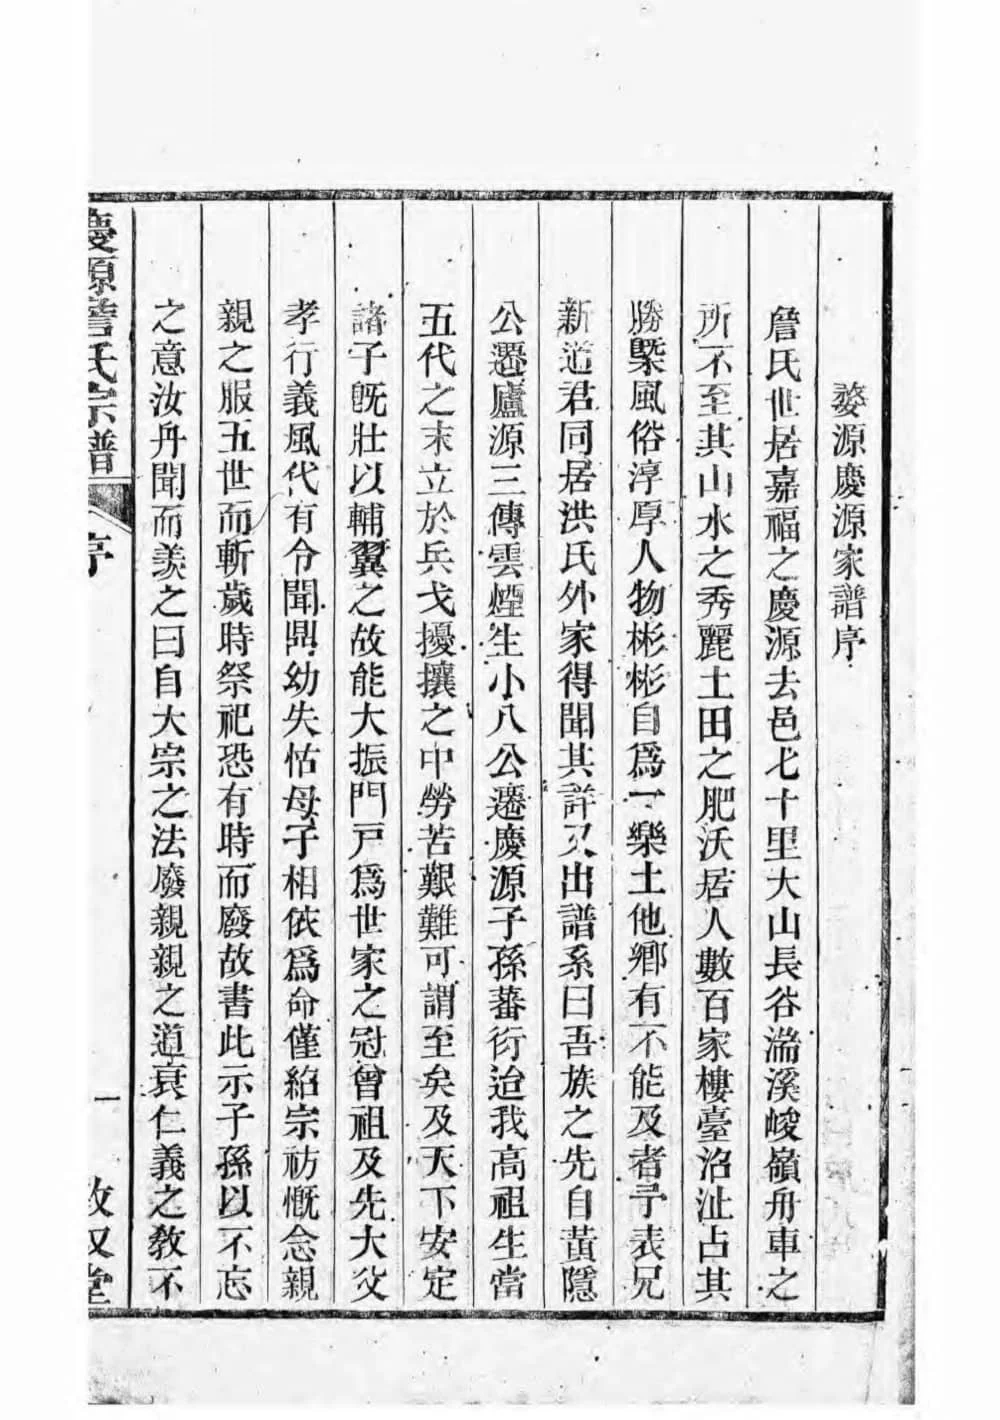 婺源慶源家譜序
詹氏世居嘉福之慶源去邑七十里大山長谷湍溪峻嶺舟車之
所不至其山水之秀麗土田之肥沃居人數百家樓臺沼沚占其
勝槩風俗淳厚人物彬彬自爲一樂土他鄉有不能及者予表兄
新道君同居洪氏外家得聞其詳又出譜系曰吾族之先自黃隱
公遷廬源三傳雲煙生小八公遷慶源子孫蕃衍迨我高祖生當
五代之末立於兵戈擾攘之中勞苦艱難可謂至矣及天下安定
諸子旣壯以輔翼之故能大振門戸爲世家之冠曾祖及先大父
孝行義風代有令聞鼎幼失怙母子相依爲命僅紹宗祊慨念親
親之服五世而斬歲時祭祀恐有時而廢故書此示子孫以不忘
之意汝丹聞而羡之曰自大宗之法廢親親之道衰仁義之敎不
慶源詹氏宗譜
序
一
敘堂